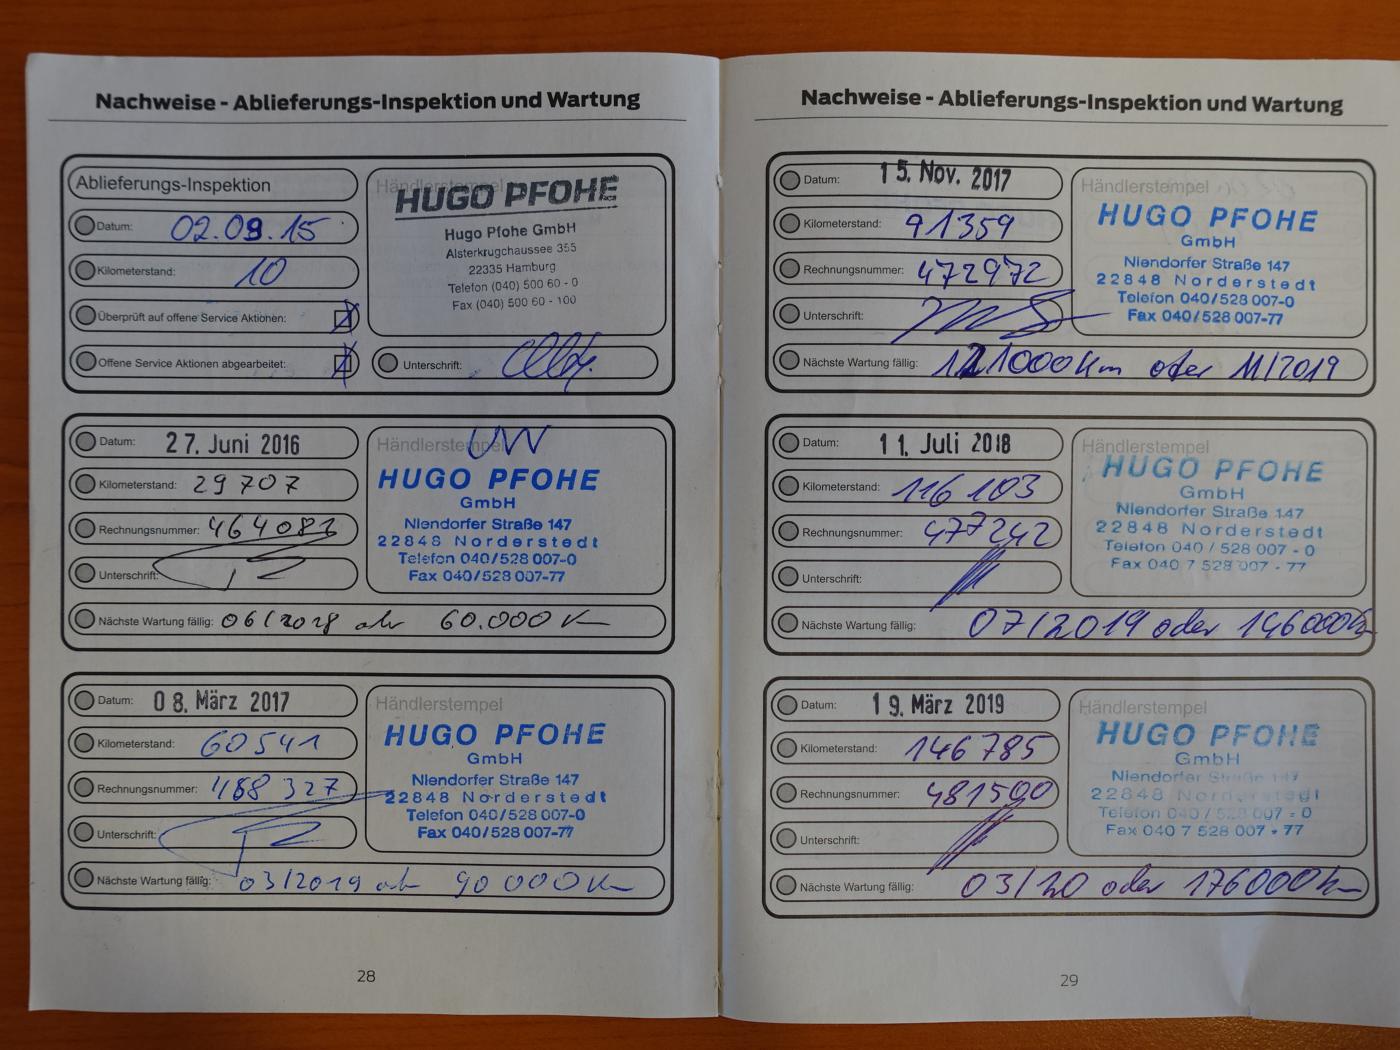 Nachweise - Ablieferungs-Inspektion und Wartung
Ablieferungs-Inspektion
Datum: 02.09.15
Kilometerstand: 10
Überprüft auf offene Service Aktionen:
Offene Service Aktionen abgearbeitet:
Händlerstempel
HUGO PFOHE
Hugo Pfohe GmbH
Alsterkrugchaussee 355
22335 Hamburg
Telefon (040) 500 60 - 0
Fax (040) 500 60 - 100
Unterschrift:
Datum: 27. Juni 2016
Kilometerstand: 29707
Rechnungsnummer:
Unterschrift:
Händlerstempel
HUGO PFOHE
GmbH
Niendorfer Straße 147
22848 Norderstedt
Telefon 040/528 007-0
Fax 040/528 007-77
Nächste Wartung fällig: 06/2018 60.000
Datum: 08. März 2017
Kilometerstand: 60541
Rechnungsnummer: 468 327
Unterschrift:
Händlerstempel
HUGO PFOHE
GmbH
Niendorfer Straße 147
22848 Norderstedt
Telefon 040/528 007-0
Fax 040/528 007-77
Nächste Wartung fällig: 03/2019 90 000
28
Nachweise - Ablieferungs-Inspektion und Wartung
Datum: 15. Nov. 2017
Kilometerstand: 91359
Rechnungsnummer: 472972
Unterschrift:
Händlerstempel
HUGO PFOHE
GmbH
Niendorfer Straße 147
22848 Norderstedt
Telefon 040/528 007-0
Fax 040/528 007-77
Nächste Wartung fällig: 121000 Km oder 11/2019
Datum: 11. Juli 2018
Kilometerstand: 116 103
Rechnungsnummer: 477242
Unterschrift:
Händlerstempel
HUGO PFOHE
GmbH
Niendorfer Straße 147
22848 Norderstedt
Telefon 040 / 528 007 - 0
Fax 040 7 528 007 - 77
Nächste Wartung fällig: 07/2019 oder 146000 Km
Datum: 19. März 2019
Kilometerstand: 146 785
Rechnungsnummer: 481590
Unterschrift:
Händlerstempel
HUGO PFOHE
GmbH
Niendorfer Straße 147
22848 Norderstedt
Telefon 040 / 528 007 - 0
Fax 040 7 528 007 - 77
Nächste Wartung fällig: 03/20 oder 176000 Km
29